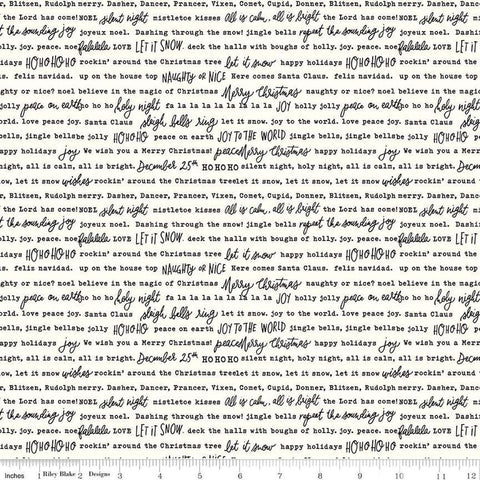 r, Blitzen, Rudolph merry. Dasher, Dancer, Prancer, Vixen, Comet, Cupid, Donner, Blitzen, Rudolph merry. Dasher
f the Lord has come! NOEL silent night mistletoe kisses all is calm, all is bright the Lord has come! NOEL silent night
t the sounding joy joyeux noel. Dashing through the snow! jingle bells repeat the sounding joy joyeux noel. Dashin
olly. joy. peace. noel falalala LOVE LET IT SNOW. deck the halls with boughs of holly. joy. peace. noel falalala LOVE LET IT
idays HOHOHOHO rockin' around the Christmas tree let it snow happy holidays HOHOHOHO rockin' around the
s. feliz navidad. up on the house top NAUGHTY OR NICE Here comes Santa Claus. feliz navidad. up on the house to
aughty or nice? noel believe in the magic of Christmas Merry Christmas naughty or nice? noel believe in the magic o
holly jolly peace on earth ho ho holy night fa la la la la la la la JOY holly jolly peace on earth ho ho holy night fa la
orld. love peace joy. Santa Claus sleigh bells ring let it come! joy to the world. love peace joy. Santa Claus
bells, jingle bells be jolly HOHOHO peace on earth JOY TO THE WORLD jingle bells, jingle bells be jolly HOHOHO
appy holidays joy We wish you a Merry Christmas! peace Merry Christmas happy holidays joy We wish you a Mer
night, all is calm, all is bright. December 25th HOHOHO silent night, holy night, all is calm, all is bright. Decem
now, let it snow wishes rockin' around the Christmas tree let it snow, let it snow, let it snow wishes rockin' around
r, Blitzen, Rudolph merry. Dasher, Dancer, Prancer, Vixen, Comet, Cupid, Donner, Blitzen, Rudolph merry. Dasher
f the Lord has come! NOEL silent night mistletoe kisses all is calm, all is bright the Lord has come! NOEL silent night
t the sounding joy joyeux noel. Dashing through the snow! jingle bells repeat the sounding joy joyeux noel. Dashin
olly. joy. peace. noel falalala LOVE LET IT SNOW. deck the halls with boughs of holly. joy. peace. noel falalala LOVE LET IT
idays HOHOHOHO rockin' around the Christmas tree let it snow happy holidays HOHOHOHO rockin' around the
s. feliz navidad. up on the house top NAUGHTY OR NICE Here comes Santa Claus. feliz navidad. up on the house to
aughty or nice? noel believe in the magic of Christmas Merry Christmas naughty or nice? noel believe in the magic o
holly jolly peace on earth ho ho holy night fa la la la la la la la JOY holly jolly peace on earth ho ho holy night fa la
orld. love peace joy. Santa Claus sleigh bells ring joy to the world. love peace joy. Santa Claus
bells, jingle bells be jolly HOHOHO peace on earth JOY TO THE WORLD jingle bells, jingle bells be jolly HOHOHO
appy holidays joy We wish you a Merry Christmas! peace Merry Christmas happy holidays joy We wish you a Mer
night, all is calm, all is bright. December 25th HOHOHO silent night, holy night, all is calm, all is bright. Decem
now, let it snow wishes rockin' around the Christmas tree let it snow, let it snow, let it snow wishes rockin' around
r, Blitzen, Rudolph merry. Dasher, Dancer, Prancer, Vixen, Comet, Cupid, Donner, Blitzen, Rudolph merry. Dasher
f the Lord has come! NOEL silent night mistletoe kisses all is calm, all is bright the Lord has come! NOEL silent night
t the sounding joy joyeux noel. Dashing through the snow! jingle bells repeat the sounding joy joyeux noel. Dashin
olly. joy. peace. noel falalala LOVE LET IT SNOW. deck the halls with boughs of holly. joy. peace. noel falalala LOVE LET IT
idays HOHOHOHO rockin' around the Christmas tree let it snow happy holidays HOHOHOHO rockin' around the
inches 1 Riley Blake 2 Designs 3 4 5 6 7 8 9 10 11 12